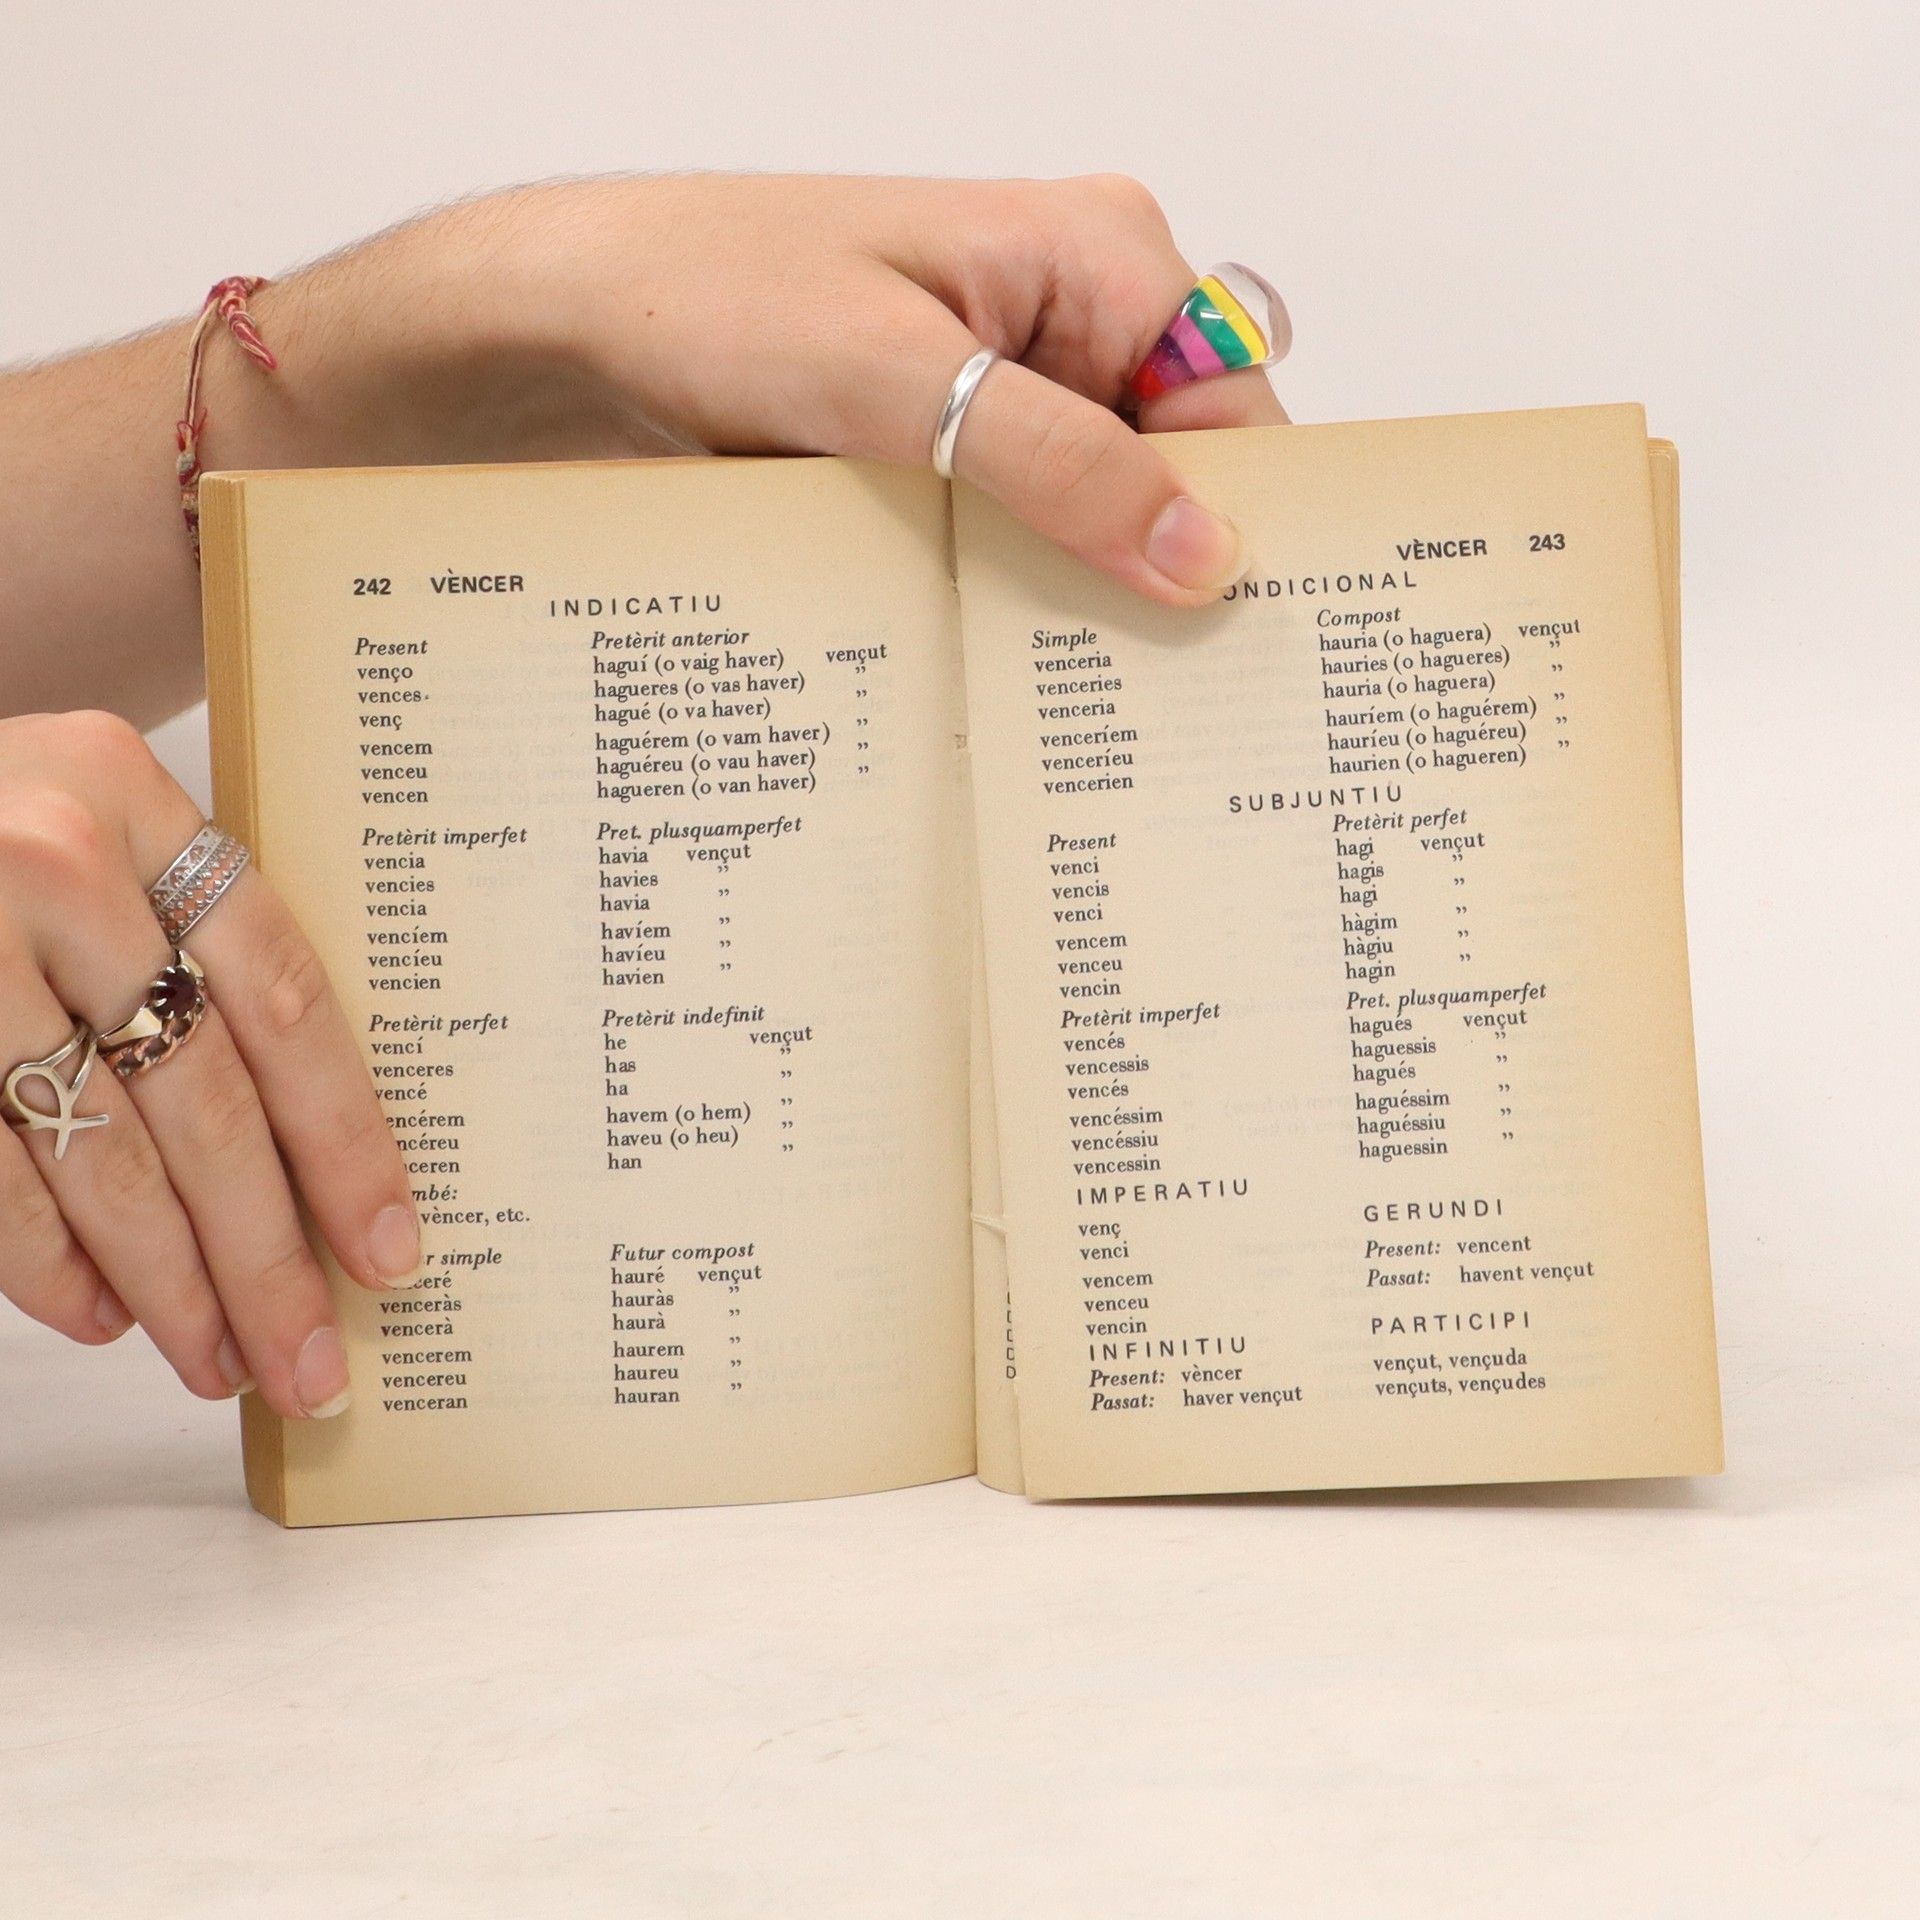 242 VÈNCER
INDICATIU
Present
venço
vences
venç
vencem
venceu
vencen
Pretèrit anterior
haguí (o vaig haver) vençut
hagueres (o vas haver) ”
hagué (o va haver) ”
haguérem (o vam haver) ”
haguéreu (o vau haver) ”
hagueren (o van haver) ”
Pretèrit imperfet
vencia
vencies
vencia
vencíem
vencíeu
vencien
Pret. plusquamperfet
havia vençut
havies ”
havia ”
havíem ”
havíeu ”
havien ”
Pretèrit perfet
vencí
venceres
vencé
encérem
ncéreu
ceren
mbé:
vèncer, etc.
Pretèrit indefinit
he vençut
has ”
ha ”
havem (o hem) ”
haveu (o heu) ”
han ”
r simple
ceré
venceràs
vencerà
vencerem
vencereu
venceran
Futur compost
hauré vençut
hauràs ”
haurà ”
haurem ”
haureu ”
hauran ”
VÈNCER 243
ONDICIONAL
Simple
venceria
venceries
venceria
venceríem
venceríeu
vencerien
Compost
hauria (o haguera) vençut
hauries (o hagueres) ”
hauria (o haguera) ”
hauríem (o haguérem) ”
hauríeu (o haguéreu) ”
haurien (o hagueren) ”
SUBJUNTIU
Present
venci
vencis
venci
vencem
venceu
vencin
Pretèrit perfet
hagi vençut
hagis ”
hagi ”
hàgim ”
hàgiu ”
hagin ”
Pretèrit imperfet
vencés
vencessis
vencés
vencéssim
vencéssiu
vencessin
Pret. plusquamperfet
hagués vençut
haguessis ”
hagués ”
haguéssim ”
haguéssiu ”
haguessin ”
IMPERATIU
venç
venci
vencem
venceu
vencin
INFINITIU
Present: vèncer
Passat: haver vençut
GERUNDI
Present: vencent
Passat: havent vençut
PARTICIPI
vençut, vençuda
vençuts, vençudes